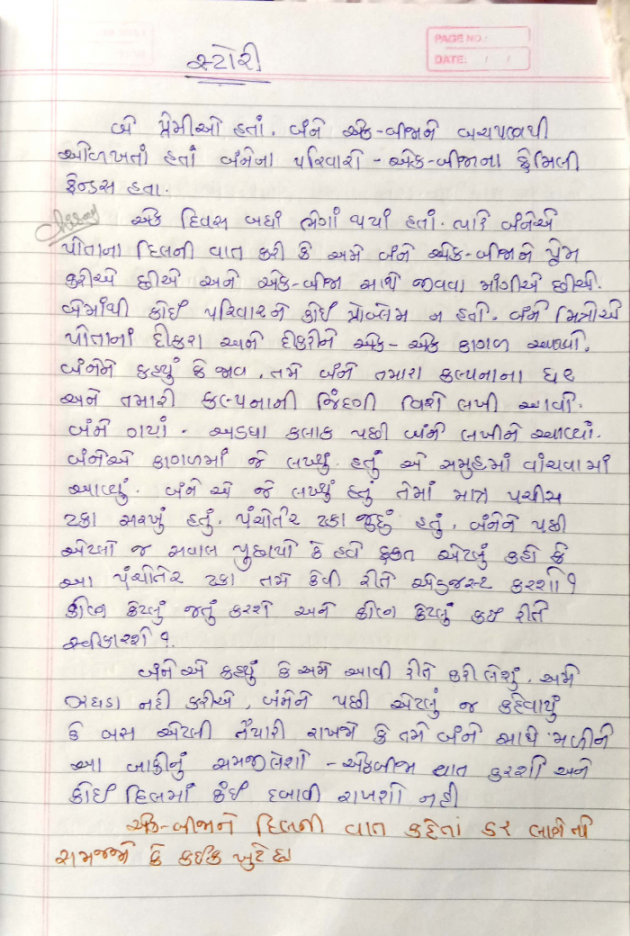 PAGE NO.:
DATE: / /
સ્ટોરી
બે પ્રેમીઓ હતાં. બંને એક-બીજાને બચપણથી
ઓળખતાં હતાં બંનેના પરિવારો - એક-બીજાના ફેમિલી
ફ્રેન્ડસ હતા.
એક દિવસ બધાં ભેગાં થયાં હતાં. ત્યારે બંનેએ
પોતાના દિલની વાત કરી કે અમે બંને એક-બીજાને પ્રેમ
કરીએ છીએ અને એક-બીજા સાથે જીવવા માંગીએ છીએ.
બેમાંથી કોઈ પરિવારને કોઈ પ્રોબ્લેમ ન હતો. બંને મિત્રોએ
પોતાનાં દીકરા અને દીકરીને એક-એક કાગળ આપ્યો.
બંનેને કહ્યું કે જાવ, તમે બંને તમારા કલ્પનાના ઘર
અને તમારી કલ્પનાની જિંદગી વિશે લખી આવો.
બંને ગયાં. અડધા કલાક પછી બંને લખીને આવ્યાં.
બંનેએ કાગળમાં જે લખ્યું હતું એ સમુહમાં વાંચવામાં
આવ્યું. બંને એ જે લખ્યું હતું તેમાં માત્ર પચીસ
ટકા સરખું હતું. પંચોતેર ટકા જુદું હતું. બંનેને પછી
એટલો જ સવાલ પુછાયો કે હવે ફક્ત એટલું કહો કે
આ પંચોતેર ટકા તમે કેવી રીતે એડજસ્ટ કરશો?
કોણ કેટલું જતું કરશે અને કોણ કેટલું કઈ રીતે
સ્વીકારશે?
બંને એ કહ્યું કે અમે આવી રીતે કરી લેશું. અમે
ઝઘડા નહી કરીએ. બંનેને પછી એટલું જ કહેવાયું
કે બસ એટલી તૈયારી રાખજો કે તમે બંને સાથે મળીને
આ બાકીનું સમજી લેશો - એકબીજા વાત કરશો અને
કોઈ દિલમાં કંઈ દબાવી રાખશો નહી
એક-બીજાને દિલની વાત કહેતાં ડર લાગે તો
સમજજો કે કઈક ખુટે છે